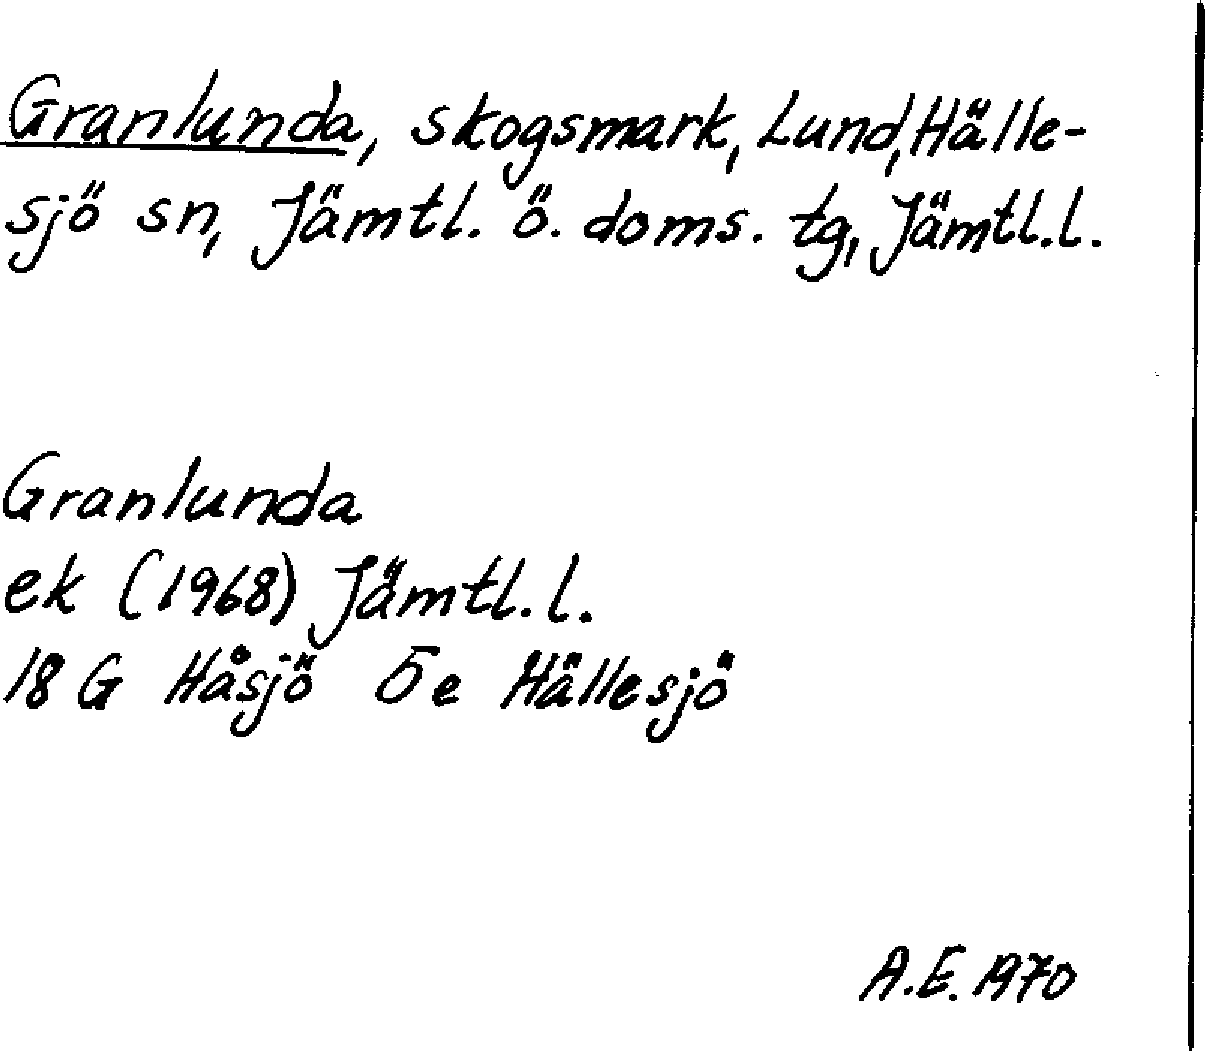 Granlunda, skogsmark, Lund, Hälle-
sjö sn, Jämtl. ö. doms. tg, Jämtl.l.
Granlunda
ek (1968) Jämtl.l.
18 G Håsjö 5e Hällesjö
A.E. 1970